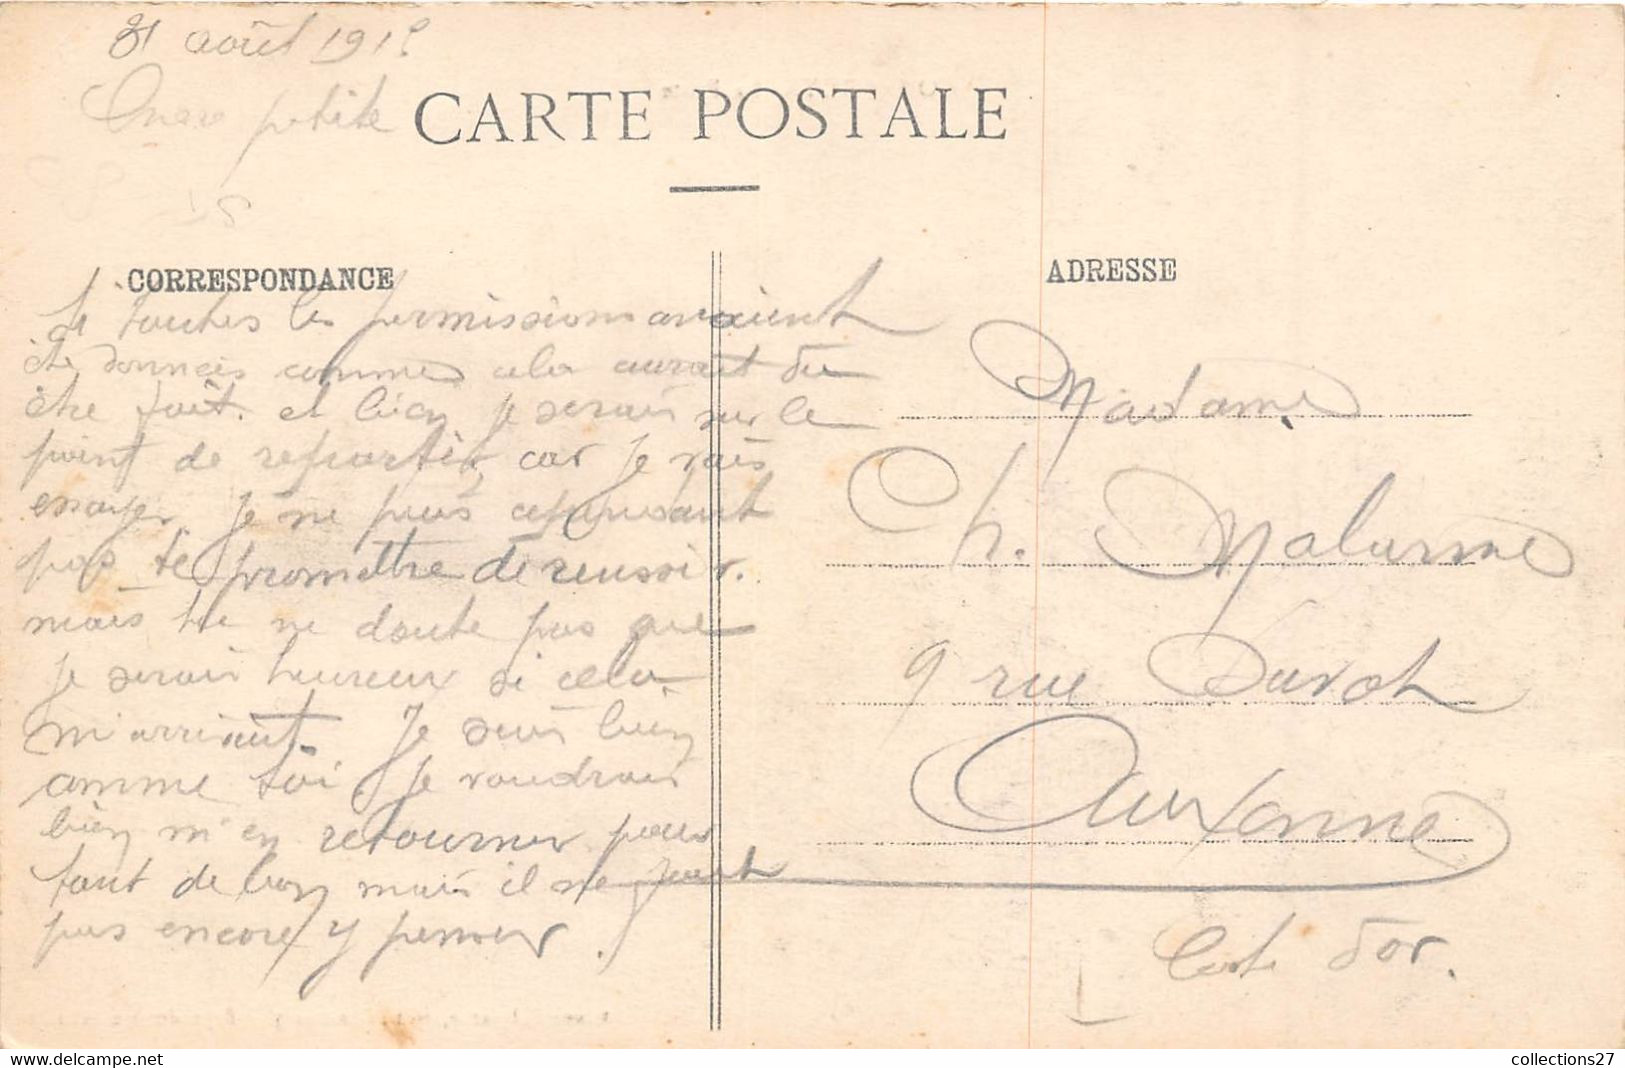 31 août 191
petite
CARTE POSTALE
CORRESPONDANCE
Si toutes les permissions avaient
été données comme cela aurait du
être fait. et bien je serais sur le
point de repartir, car je vais
essayer. Je ne puis cependant
pas te promettre de reussir.
mais tu ne doute pas que
je serais heureux si cela
m'arrivait. Je suis bien
comme toi. Je voudrais
bien m'en retourner pour
tout de bon mais il ne faut
pas encore y penser.
ADRESSE
Madame
Ch. Malarme
9 rue Davot
Auxonne
Cote d'or.
collections27